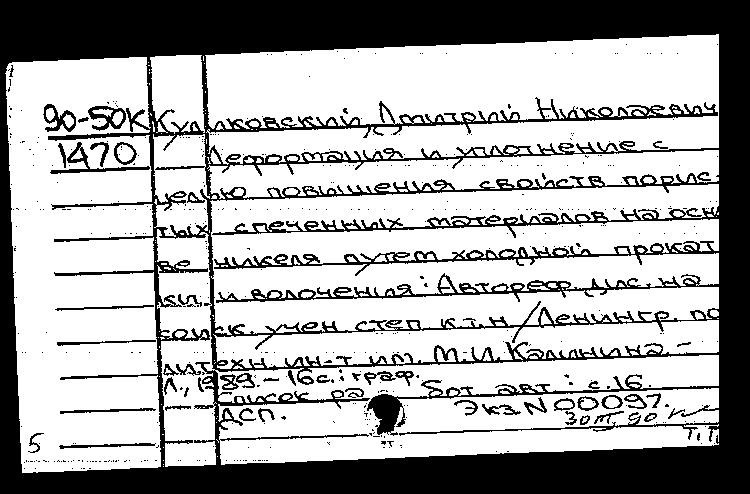 90-50К Куликовский, Дмитрий Николаевич
1470 Деформация и уплотнение с
целью повышения свойств порис-
тых спеченных материалов на осно
ве никеля путем холодной прокат
ки и волочения: Автореф. дис. на
соиск. учен степ к.т.н / Ленингр. по
литехн. ин-т им. М.И. Калинина. -
Л., 1989. - 16 с.: граф.
Список ра бот авт: с.16.
ДСП. Экз. N 00097.
5